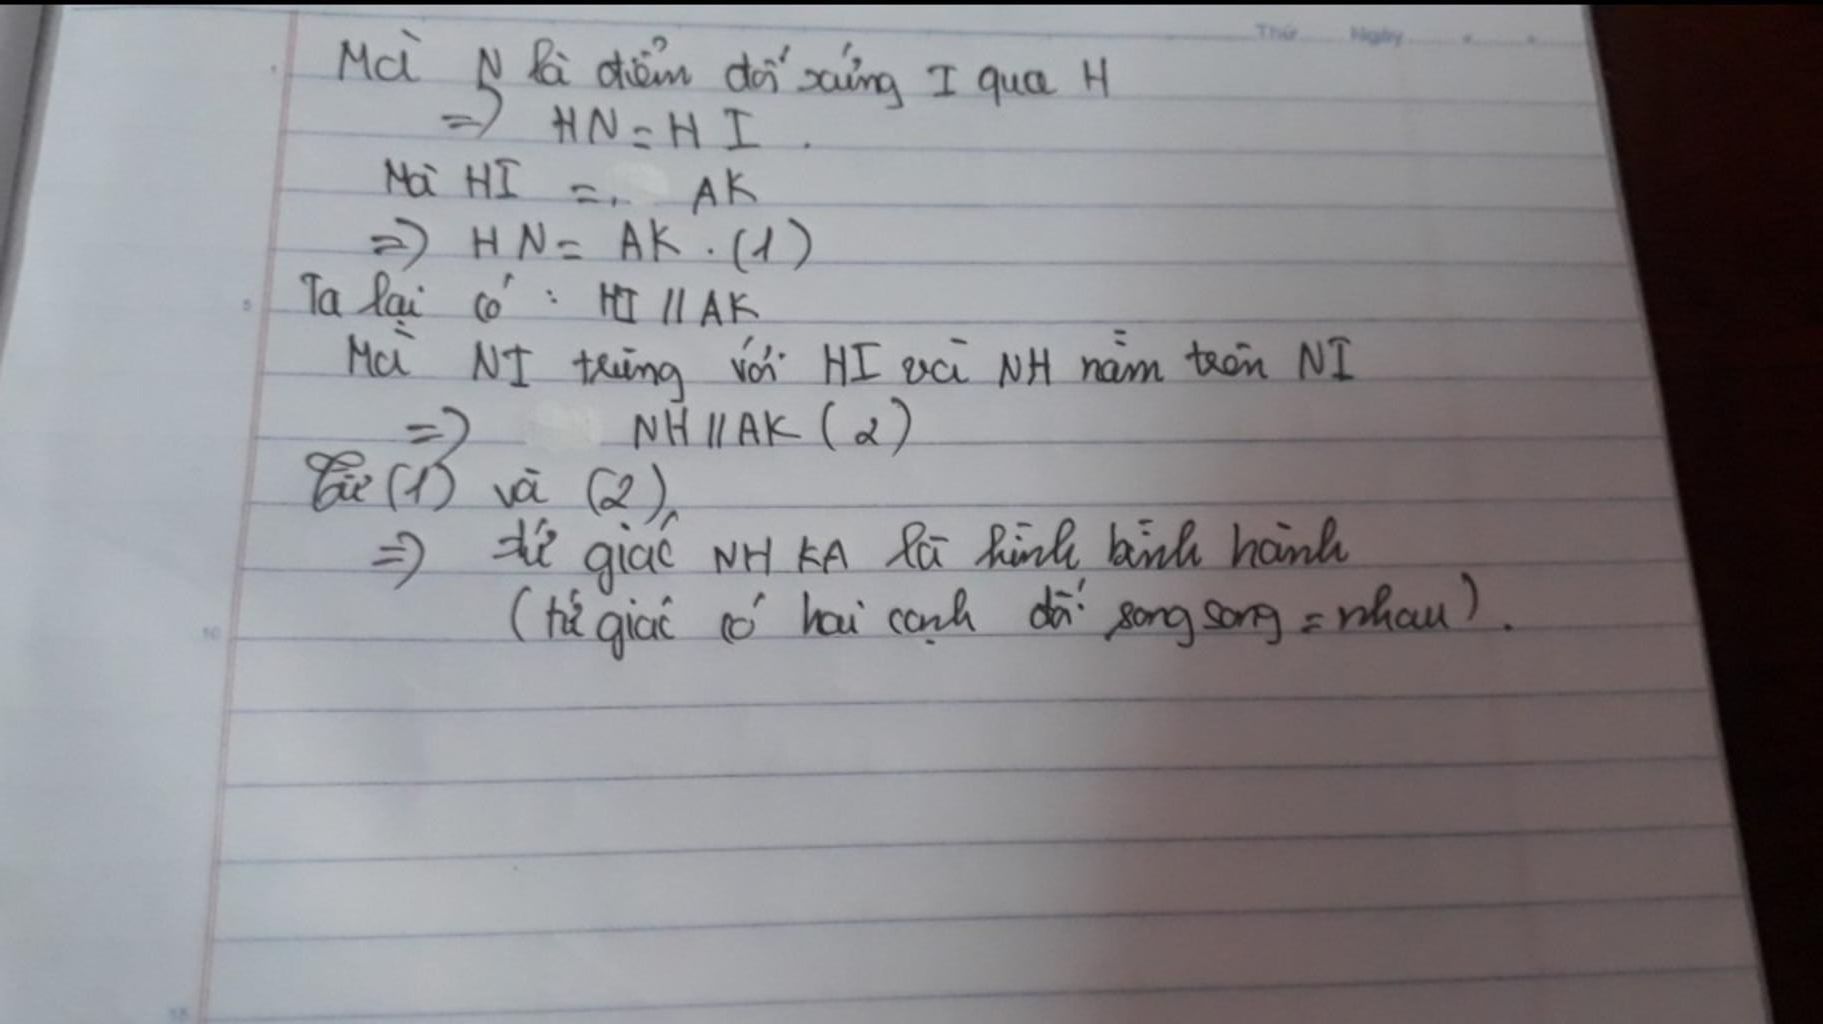 Thứ Ngày
Mà N là điểm đối xứng I qua H
=> HN = HI .
Mà HI = AK
=> HN = AK . (1)
5 Ta lại có : HI // AK
Mà NI trùng với HI và NH nằm trên NI
=> NH // AK (2)
Từ (1) và (2),
=> tứ giác NHKA là hình bình hành
10 (tứ giác có hai cạnh đối song song = nhau) .
15